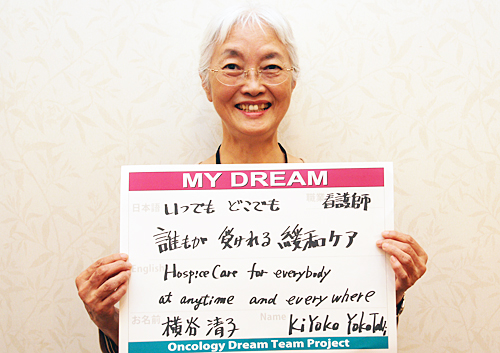 MY DREAM
日本語 いつでも どこでも 職業 看護師
誰もが 受けれる 緩和ケア
English
Hospice Care for everybody
at anytime and every where
お名前 横谷 清子 Name KiYoko YokoTani
Oncology Dream Team Project